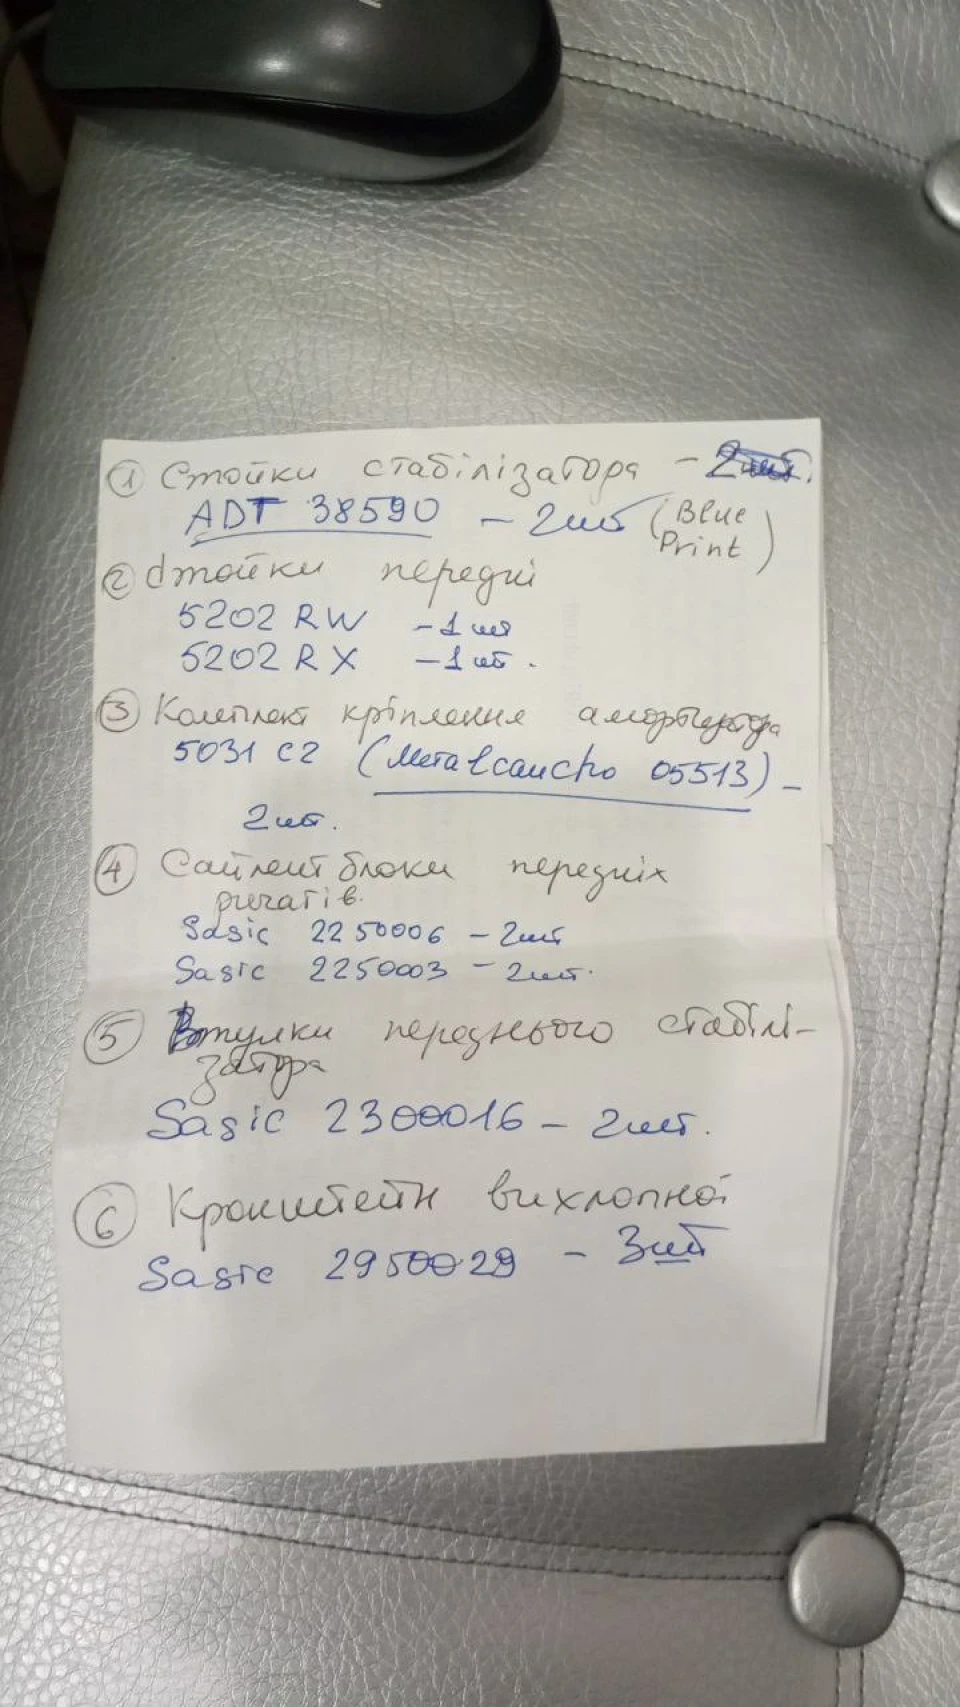 1 Стойки стабілізатора - 2шт.
ADT 38590 - 2шт (Blue Print)
2 Стойки передні
5202 RW - 1 шт
5202 RX - 1 шт.
3 Комплект кріплення амортизатора
5031 C2 (Metalcaucho 05513) -
2шт.
4 Сайлент блоки передніх
ричагів.
Sasic 2250006 - 2шт
Sasic 2250003 - 2шт.
5 Втулки переднього стабілі-
затора
Sasic 2300016 - 2шт.
6 Кронштейн вихлопної
Sasic 2950029 - 3шт